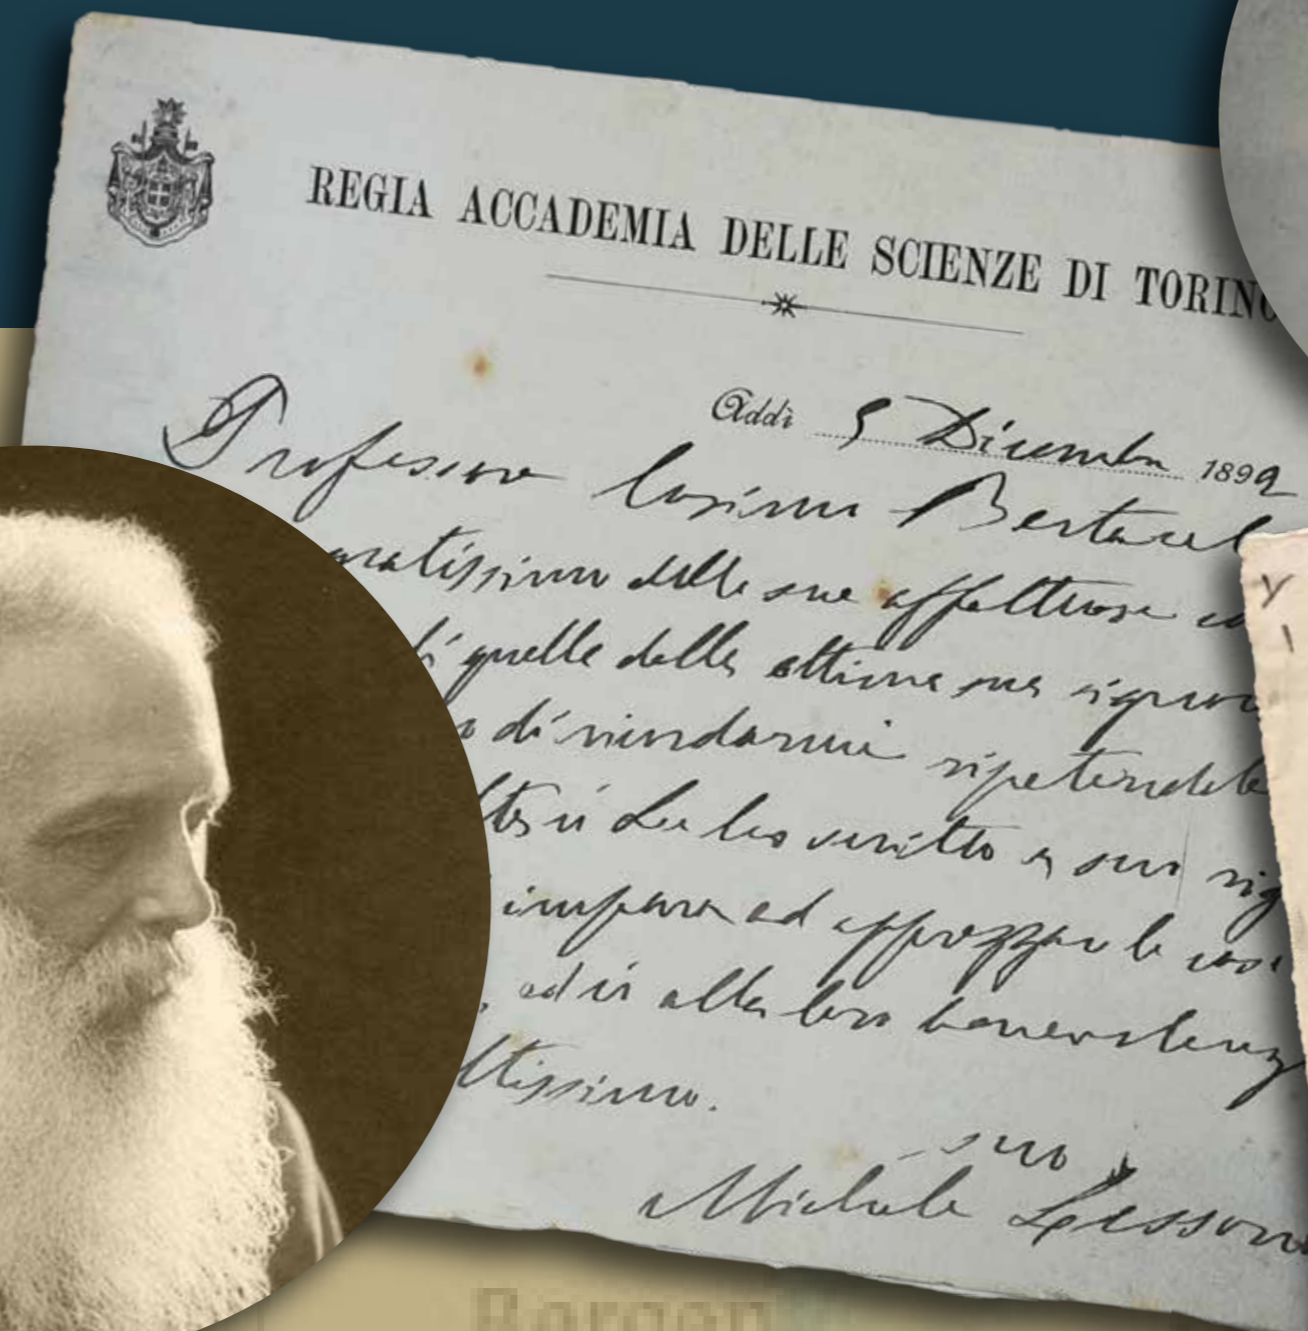 REGIA ACCADEMIA DELLE SCIENZE DI TORINO
Addì 5 Dicembre 1892
Professore Cosimo Bertacch
gratissimo delle sue affettuose
di quelle della ottima sua signora
di ricordarmi ripetendole
Lei ho scritto a suo
impara ad apprezzare le
ed io alla loro benevolenz
ttissimo.
suo
Michele Lessona